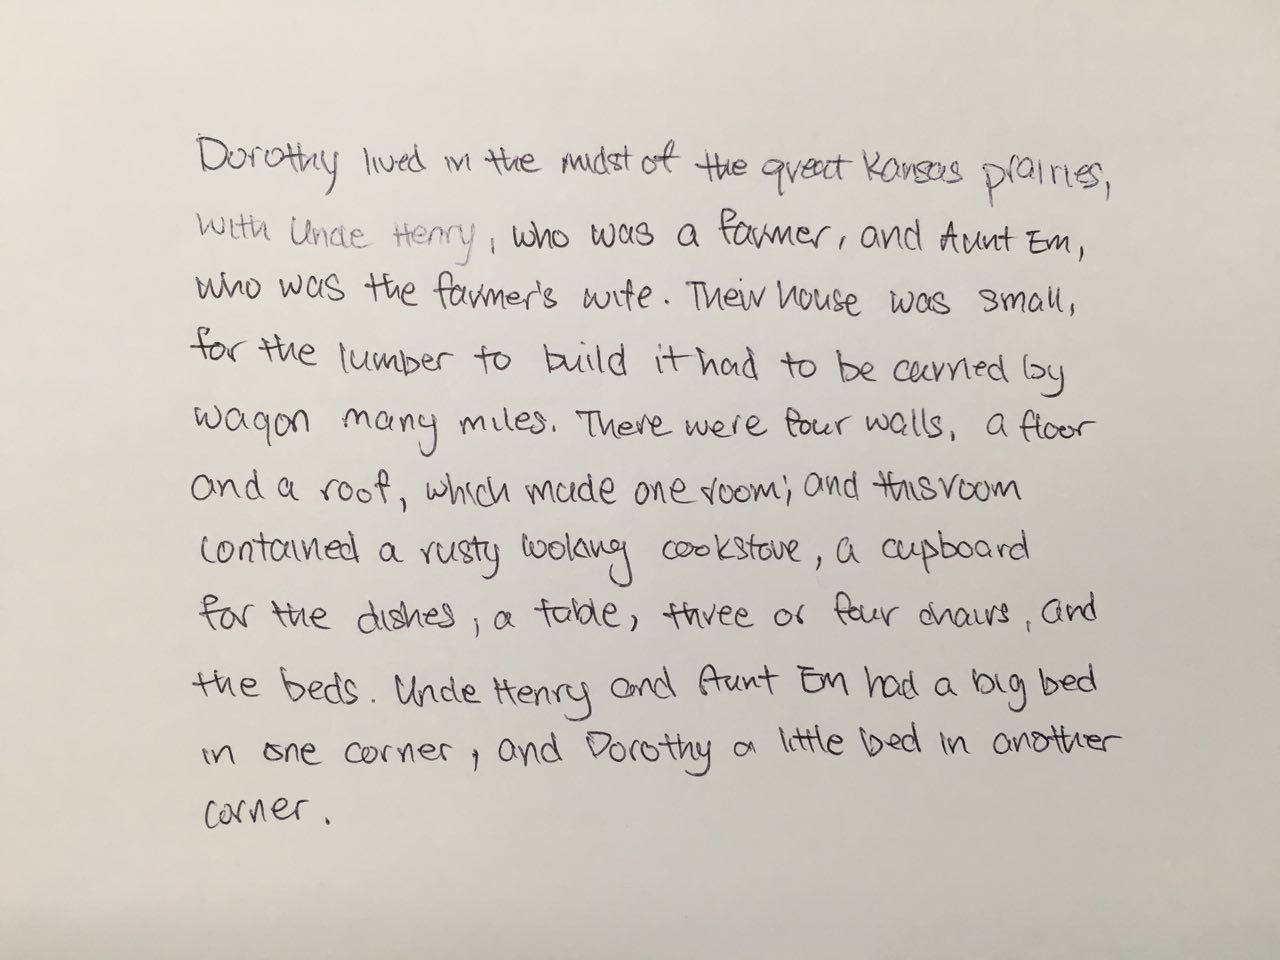 Dorothy lived in the midst of the great Kansas prairies,
with Uncle Henry, who was a farmer, and Aunt Em,
who was the farmer's wife. Their house was small,
for the lumber to build it had to be carried by
wagon many miles. There were four walls, a floor
and a roof, which made one room; and this room
contained a rusty looking cookstove, a cupboard
for the dishes, a table, three or four chairs, and
the beds. Uncle Henry and Aunt Em had a big bed
in one corner, and Dorothy a little bed in another
corner.